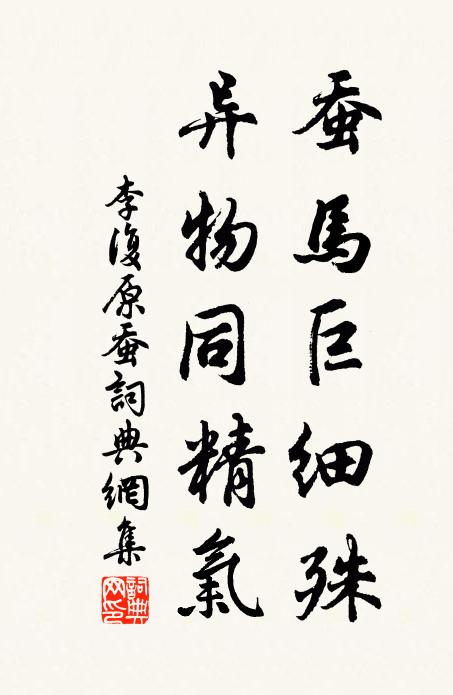 蚕馬巨細殊
异物同精氣
李復原蚕詞典網集
詞典網印